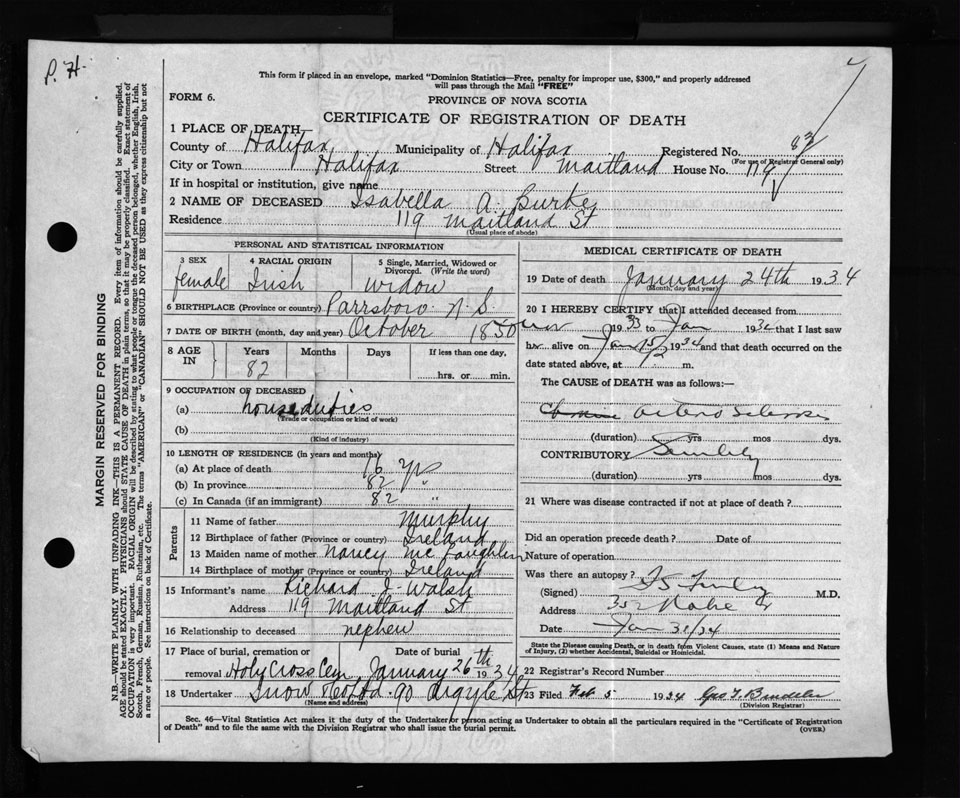 P. H.
This form if placed in an envelope, marked "Dominion Statistics—Free, penalty for improper use, $300," and properly addressed
will pass through the Mail "FREE"
FORM 6.
PROVINCE OF NOVA SCOTIA
CERTIFICATE OF REGISTRATION OF DEATH
1 PLACE OF DEATH—
County of Halifax Municipality of Halifax Registered No. 83
(For use of Registrar General only)
City or Town Halifax Street Maitland House No. 119
If in hospital or institution, give name
2 NAME OF DECEASED Isabella A. Burke
Residence 119 Maitland St
(Usual place of abode)
PERSONAL AND STATISTICAL INFORMATION
3 SEX 4 RACIAL ORIGIN 5 Single, Married, Widowed or Divorced. (Write the word)
female Irish widow
6 BIRTHPLACE (Province or country) Parrsboro N. S.
7 DATE OF BIRTH (month, day and year) October 1850
8 AGE IN Years Months Days If less than one day,
82 hrs. or min.
9 OCCUPATION OF DECEASED
(a) house duties
(Trade or occupation or kind of work)
(b)
(Kind of industry)
10 LENGTH OF RESIDENCE (in years and months)
(a) At place of death 16 yrs
(b) In province 82 "
(c) In Canada (if an immigrant) 82 "
Parents
11 Name of father Murphy
12 Birthplace of father (Province or country) Ireland
13 Maiden name of mother Nancy McLaughlin
14 Birthplace of mother (Province or country) Ireland
15 Informant's name Richard J. Walsh
Address 119 Maitland St
16 Relationship to deceased nephew
17 Place of burial, cremation or Date of burial
removal Holy Cross Cem January 26th 1934
18 Undertaker Snow & Co Ltd. 90 Argyle St
(Name and address)
MEDICAL CERTIFICATE OF DEATH
19 Date of death January 24th 1934
(Month, day and year)
20 I HEREBY CERTIFY that I attended deceased from
1933 to Jan 1934 that I last saw
h alive on Jan 15 1934 and that death occurred on the
date stated above, at m.
The CAUSE of DEATH was as follows:—
Chronic arterio Sclerosis
(duration) yrs mos dys.
CONTRIBUTORY Senility
(duration) yrs mos dys.
21 Where was disease contracted if not at place of death?
Did an operation precede death? Date of
Nature of operation
Was there an autopsy?
(Signed) M.D.
Address 352 Robie St
Date Jan 31/34
State the Disease causing Death, or in death from Violent Causes, state (1) Means and Nature of Injury, (2) whether Accidental, Suicidal or Homicidal.
22 Registrar's Record Number
23 Filed Feb 5 1934 Geo T.
(Division Registrar)
Sec. 46—Vital Statistics Act makes it the duty of the Undertaker or person acting as Undertaker to obtain all the particulars required in the "Certificate of Registration
of Death" and to file the same with the Division Registrar who shall issue the burial permit.
(OVER)
MARGIN RESERVED FOR BINDING
N.B.—WRITE PLAINLY WITH UNFADING INK—THIS IS A PERMANENT RECORD. Every item of information should be carefully supplied.
AGE should be stated EXACTLY. PHYSICIANS should STATE CAUSE OF DEATH in plain terms, so that it may be properly classified. Exact statement of
OCCUPATION is very important. RACIAL ORIGIN will be described by stating to what people or tongue the deceased person belonged, whether English, Irish,
Scotch, French, German, Russian, Ruthenian, etc. The terms "AMERICAN" or "CANADIAN" SHOULD NOT BE USED as they express citizenship but not
a race or people. See instructions on back of Certificate.